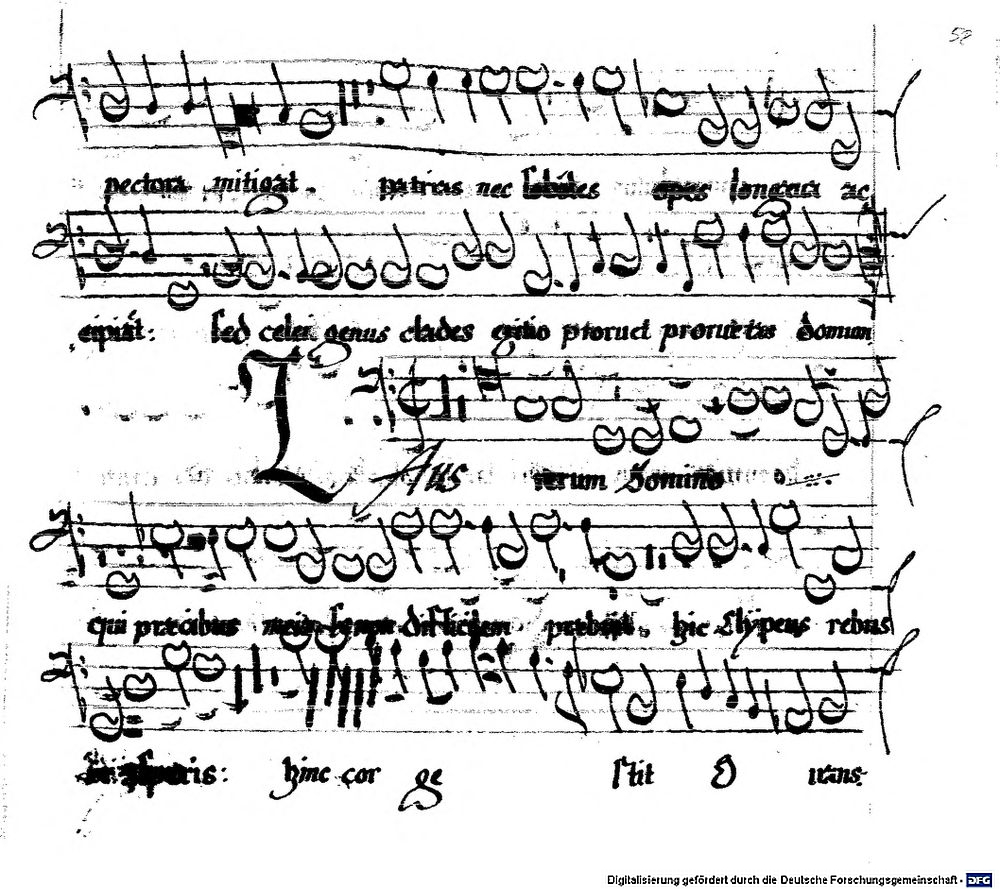 58
pectora mitigat. patrias nec opes longeua ac
cipiat: sed celei genus clades exitio proruet domum
Laus rerum Domino
qui precibus meis difficilem prebuit, hic Clypeus rebus
in asperis: hinc cor ge stit O
Digitalisierung gefördert durch die Deutsche Forschungsgemeinschaft - DFG